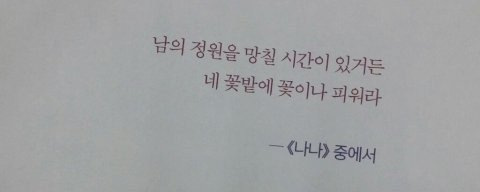 남의 정원을 망칠 시간이 있거든
네 꽃밭에 꽃이나 피워라
─《나나》 중에서